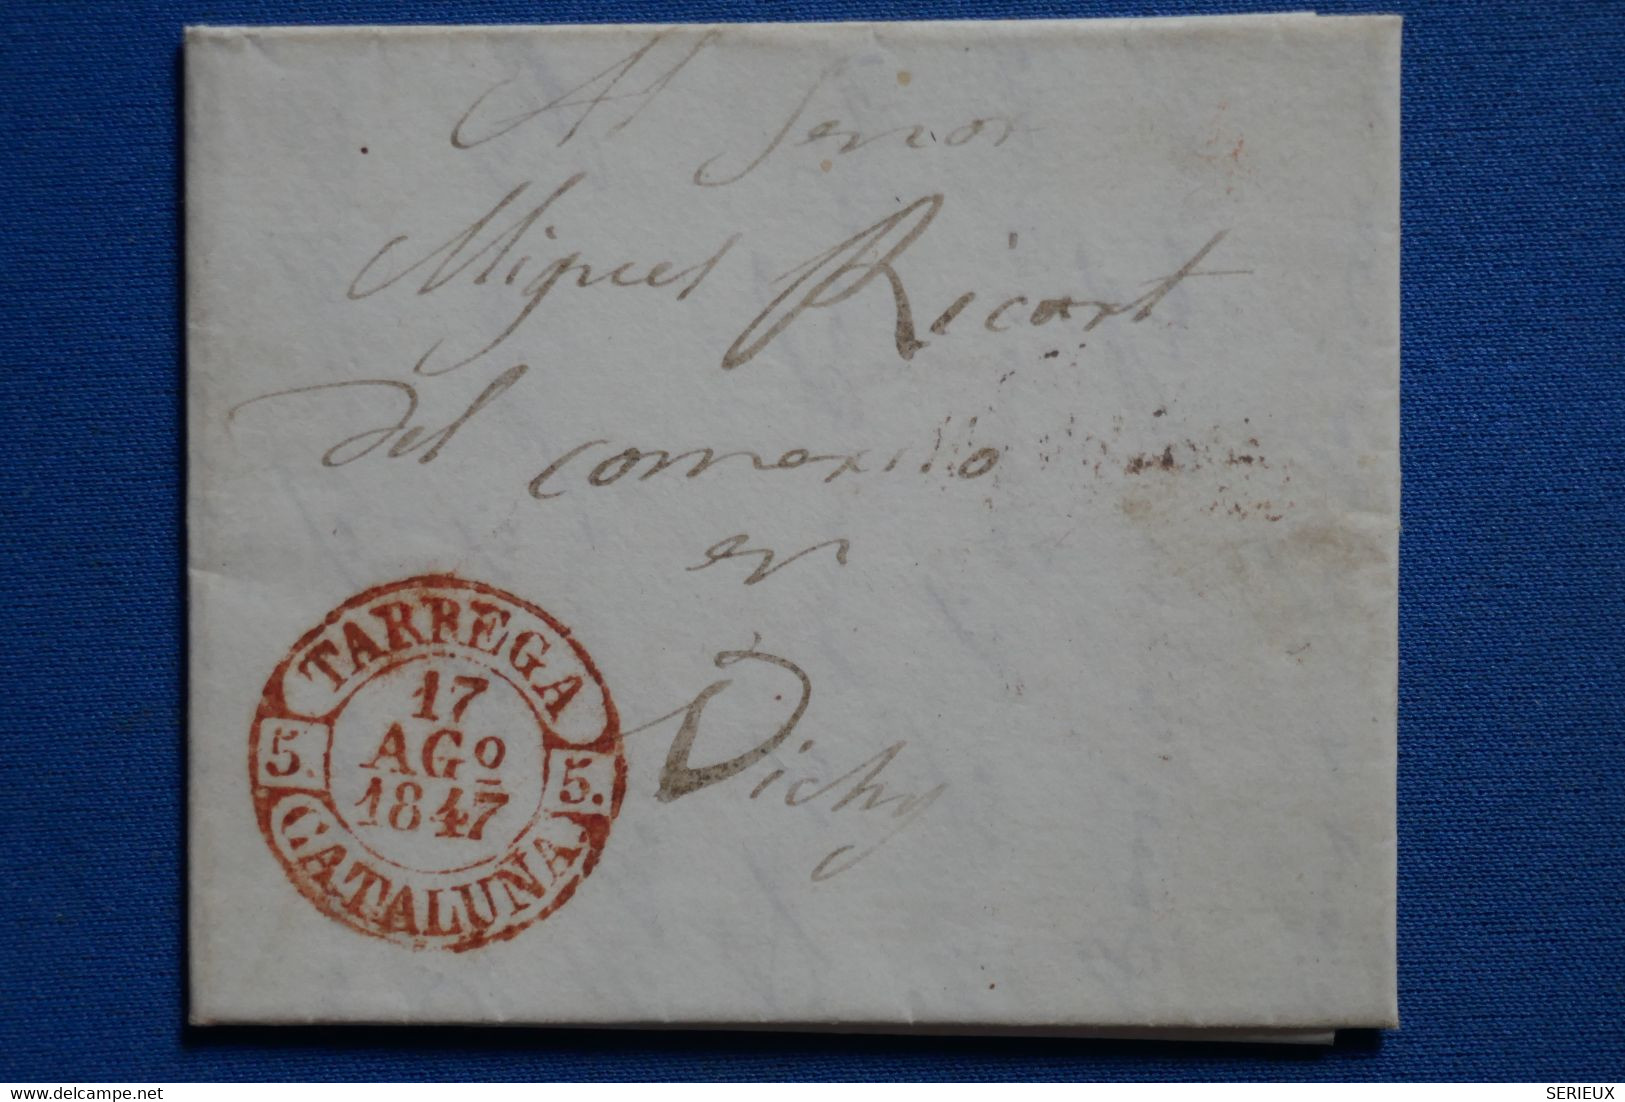 Al Senor
Miguel Ricart
del comercio
en
Vichy
TARREGA
17
AGº
1847
5. 5.
CATALUNA.
delcampe.net
SERIEUX